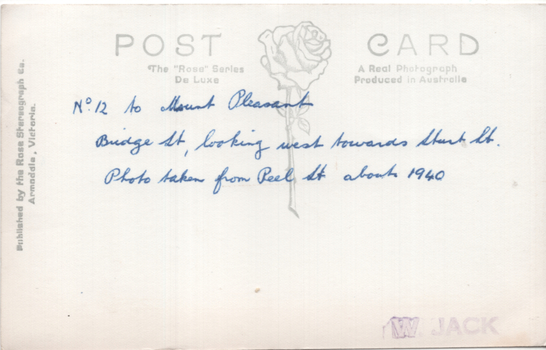 POST CARD
The "Rose" Series
De Luxe
A Real Photograph
Produced in Australia
Published by the Rose Stereograph Co.
Armadale, Victoria.
No. 12 to Mount Pleasant
Bridge St, looking west towards Sturt St.
Photo taken from Peel St about 1940
W JACK